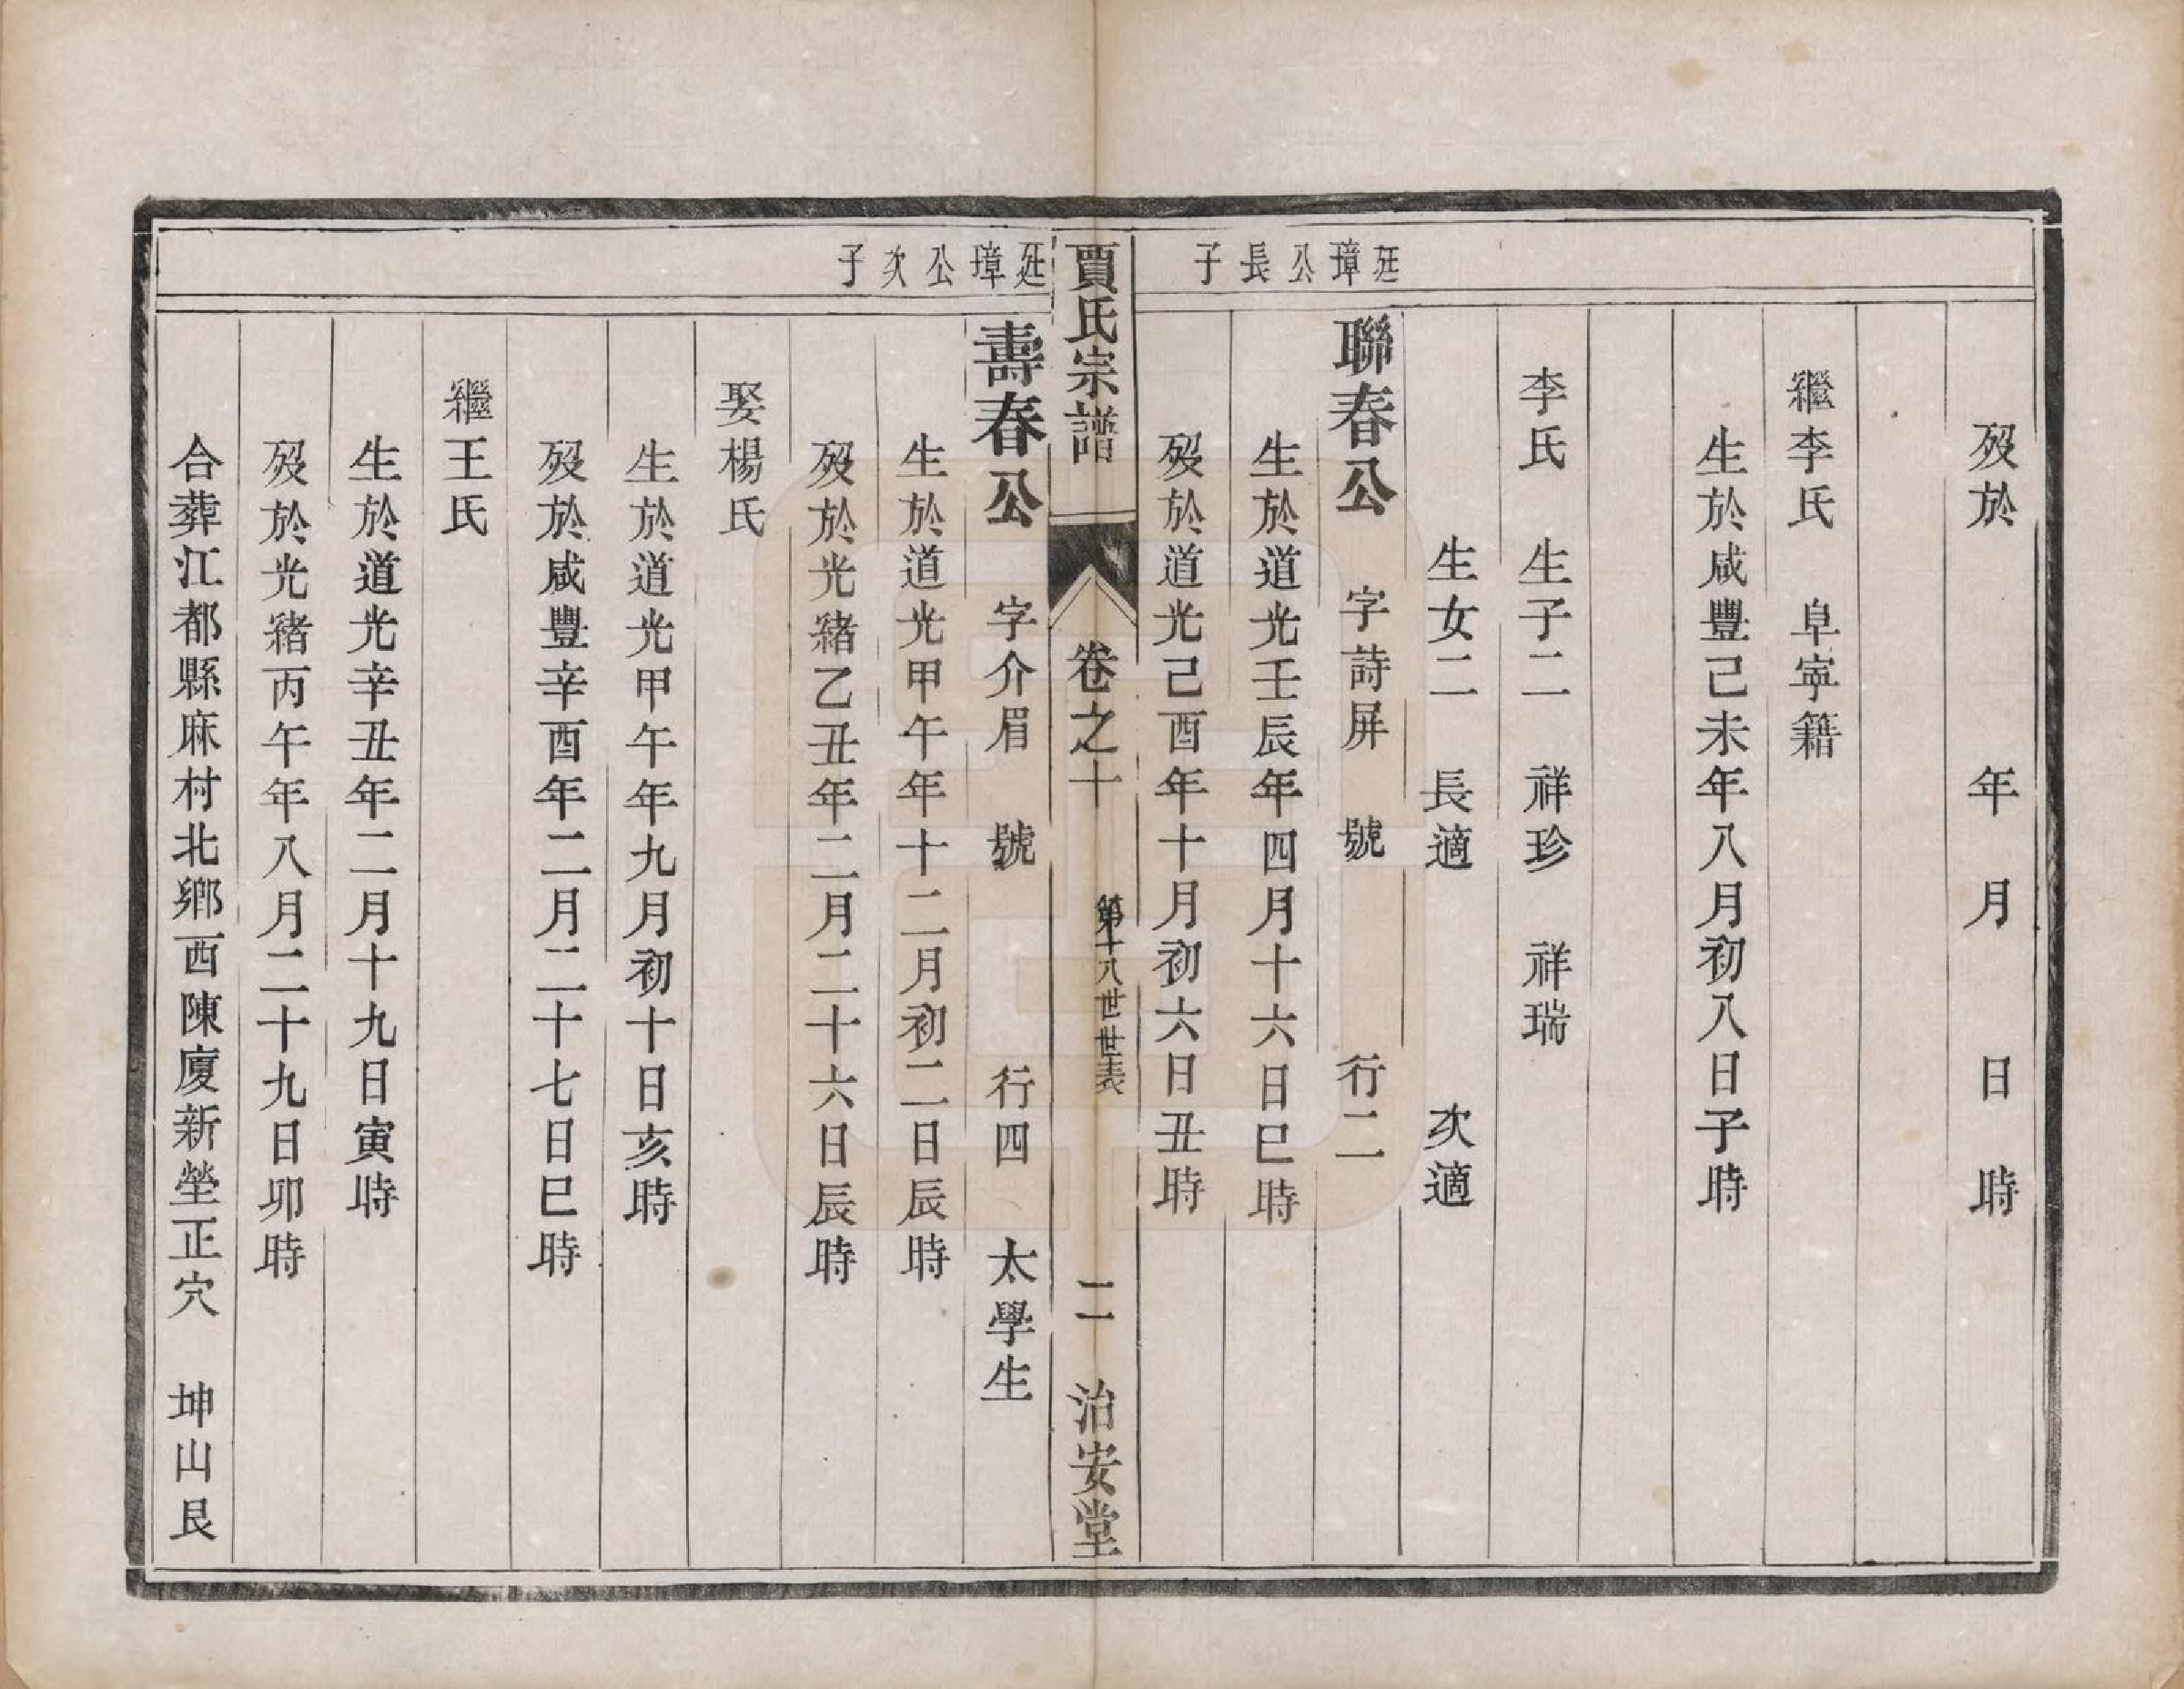 歿於　年　月　日　時
繼李氏　阜寧籍
生於咸豐己未年八月初八日子時
李氏　生子二　祥珍　祥瑞
生女二　長適　次適
廷璋公長子
聯春公　字詩屏　號　行二
生於道光壬辰年四月十六日巳時
歿於道光己酉年十月初六日丑時
賈氏宗譜　卷之十　第十八世世表　二　治安堂
廷璋公次子
壽春公　字介眉　號　行四　太學生
生於道光甲午年十二月初二日辰時
歿於光緒乙丑年二月二十六日辰時
娶楊氏
生於道光甲午年九月初十日亥時
歿於咸豐辛酉年二月二十七日巳時
繼王氏
生於道光辛丑年二月十九日寅時
歿於光緒丙午年八月二十九日卯時
合葬江都縣麻村北鄉西陳廈新塋正穴　坤山艮